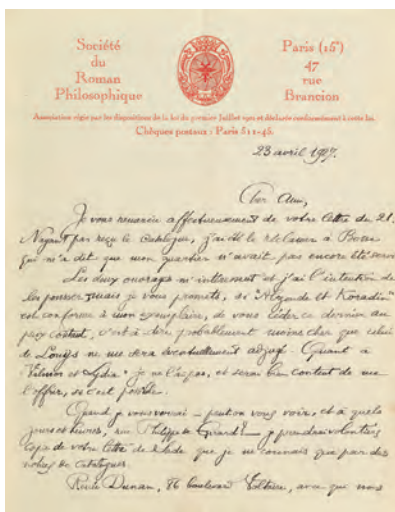 Société
du
Roman
Philosophique
Paris (15e)
47
rue
Brancion
Association régie par les dispositions de la loi du premier Juillet 1901 et déclarée conformément à cette loi.
Chèques postaux : Paris 511-45.
23 avril 1927.
Cher Ami,
Je vous remercie affectueusement de votre lettre du 21.
N'ayant pas reçu le catalogue, j'ai été le réclamer à Bosse
qui m'a dit que mon quartier n'avait pas encore été servi
Les deux ouvrages m'intéressent et j'ai l'intention de
les pousser mais je vous promets, si "
est conforme à mon exemplaire, de vous céder ce dernier au
prix coûtant, c'est à dire probablement moins cher que celui
de Louÿs ne me sera éventuellement adjugé. Quant à
et je ne l'ai pas, et serai bien content de me
l'offrir, si c'est possible.
Quand je vous verrai - peut on vous voir, et à quels
jours et heures, rue Philippe de Girard ? - je prendrai volontiers
copie de votre lettre de Sade que je ne connais que par des
notices de catalogues.
Renée Dunan, 86 boulevard Voltaire, avec qui nous